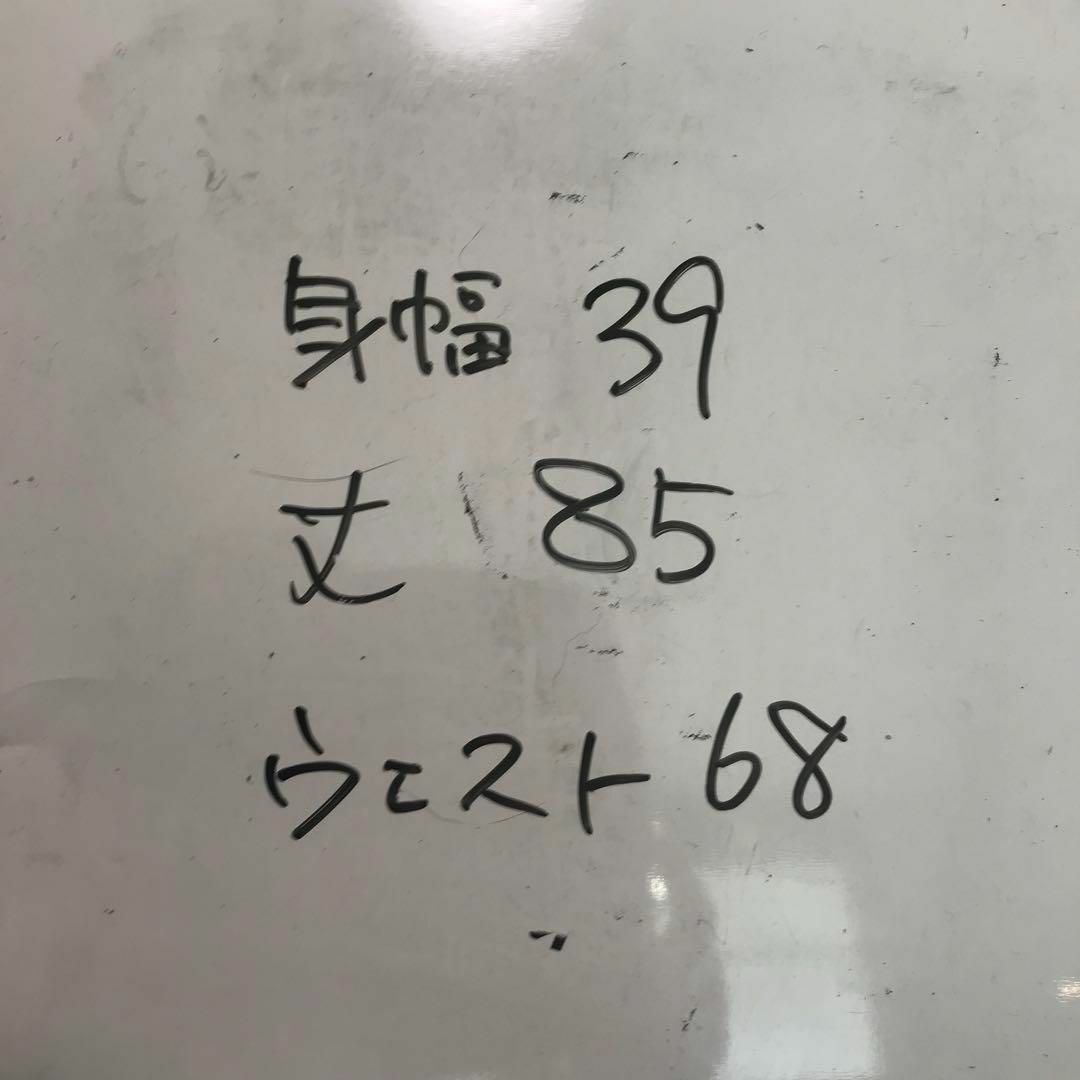 身幅 39
丈 85
ウエスト 68